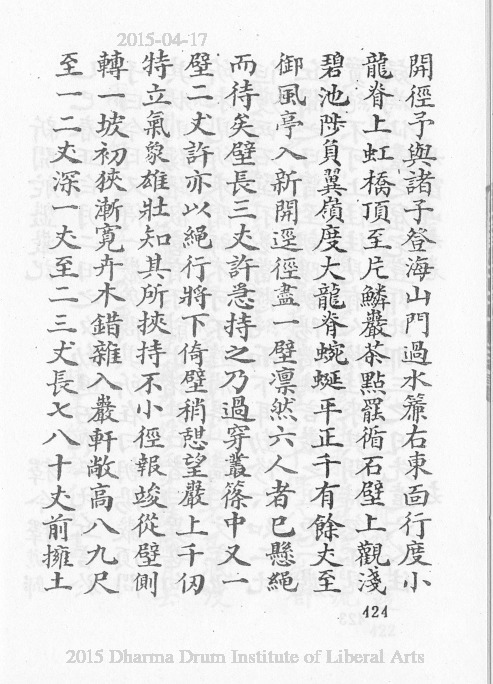 2015-04-17
開徑予與諸子登海山門過水簾右東面行度小
龍脊上虹橋頂至片鱗巖茶點罷循石壁上觀淺
碧池陟負翼嶺度大龍脊蜿蜒平正千有餘丈至
御風亭入新開逕徑盡一壁凛然六人者已懸繩
而待矣壁長三丈許恚持之乃過穿叢篠中又一
壁二丈許亦以繩行將下倚壁稍憇望巖上千仞
特立氣象雄壯知其所挾持不小徑報竣從壁側
轉一坡初狹漸寬卉木錯雜入巖軒敞高八九尺
至一二丈深一丈至二三丈長七八十丈前擁土
424
2015 Dharma Drum Institute of Liberal Arts